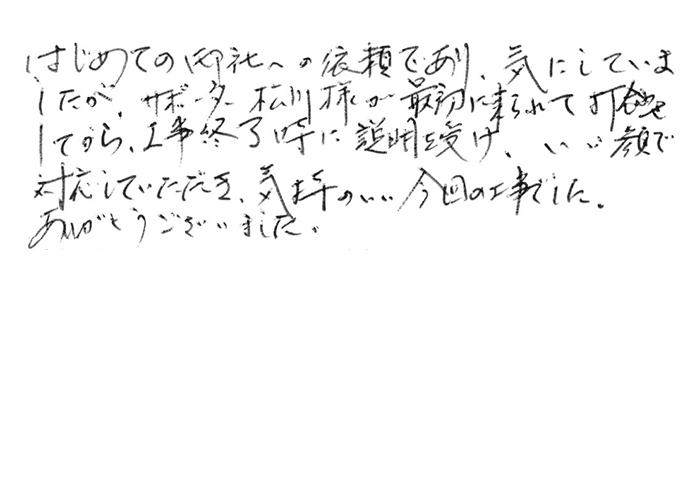 はじめての御社への依頼であり、気にしていま
したが、サポーター松川様が最初に来られて打合せ
してから、工事終了時に説明を受け、いい顔で
対応していただき、気持のいい今回の工事でした。
ありがとうございました。